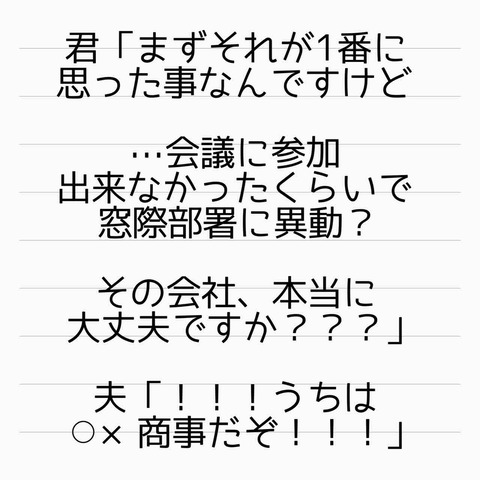 君「まずそれが1番に
思った事なんですけど
…会議に参加
出来なかったくらいで
窓際部署に異動？
その会社、本当に
大丈夫ですか？？？」
夫「！！！うちは
○× 商事だぞ！！！」